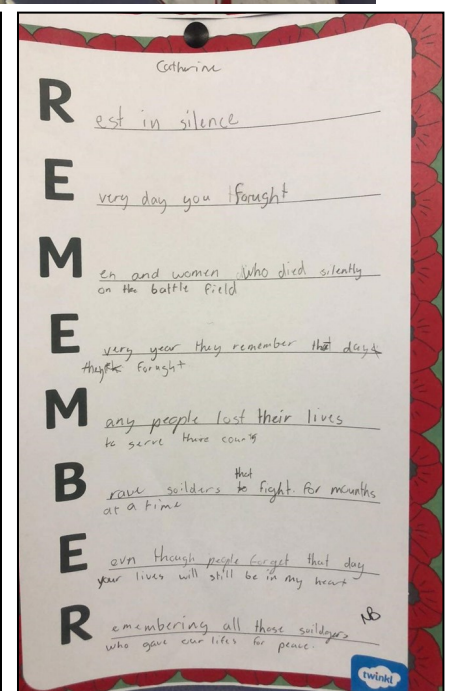 Catherine
R est in silence
E very day you forught
M en and women who died silently
on the battle field
E very year they remember that day
they forught
M any people lost their lives
to serve there
B rave soilders that fight. for mounths
at a time
E evn though people forget that day
your lives will still be in my heart
R emembering all those soildgers
who gave our lifes for peace.
NB
twinkl